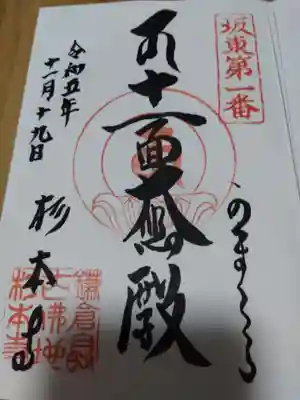 坂東第一番
かまくら
十一面大悲殿
令和五年
十一月十九日
杉本寺
鎌倉最
古佛地
杉本寺